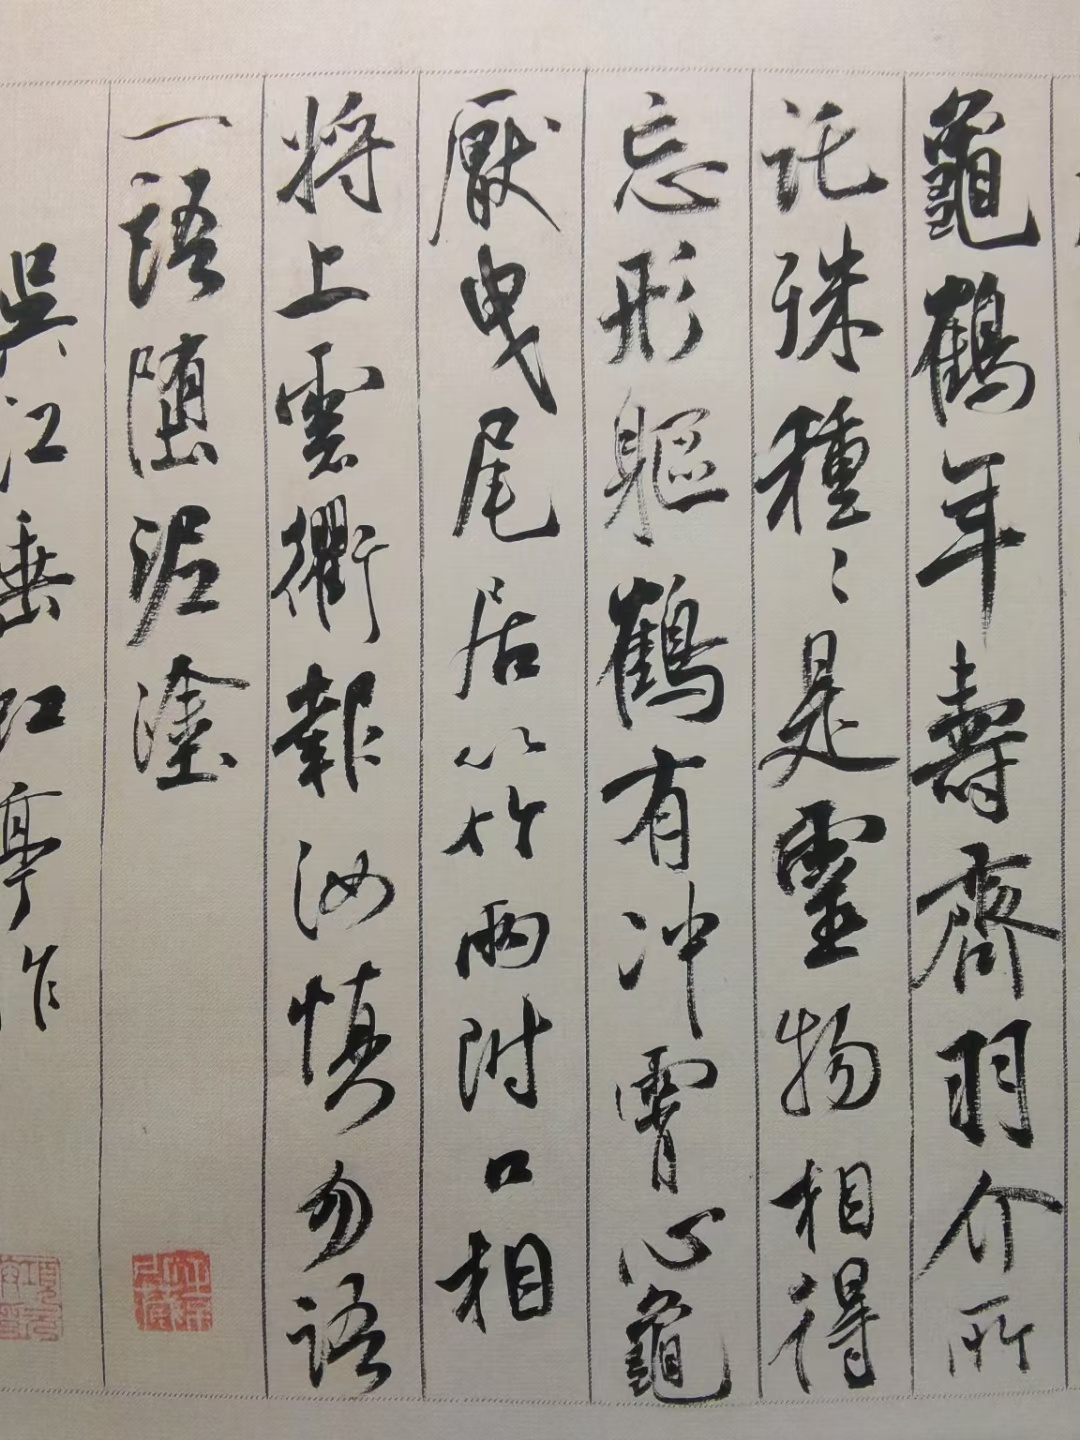 龜鶴年壽齊羽介所
託殊種〻是靈物相得
忘形軀鶴有冲霄心龜
厭曳尾居以竹兩附口相
將上雲衢報汝慎勿語
一語墮泥塗
吳江垂虹亭作